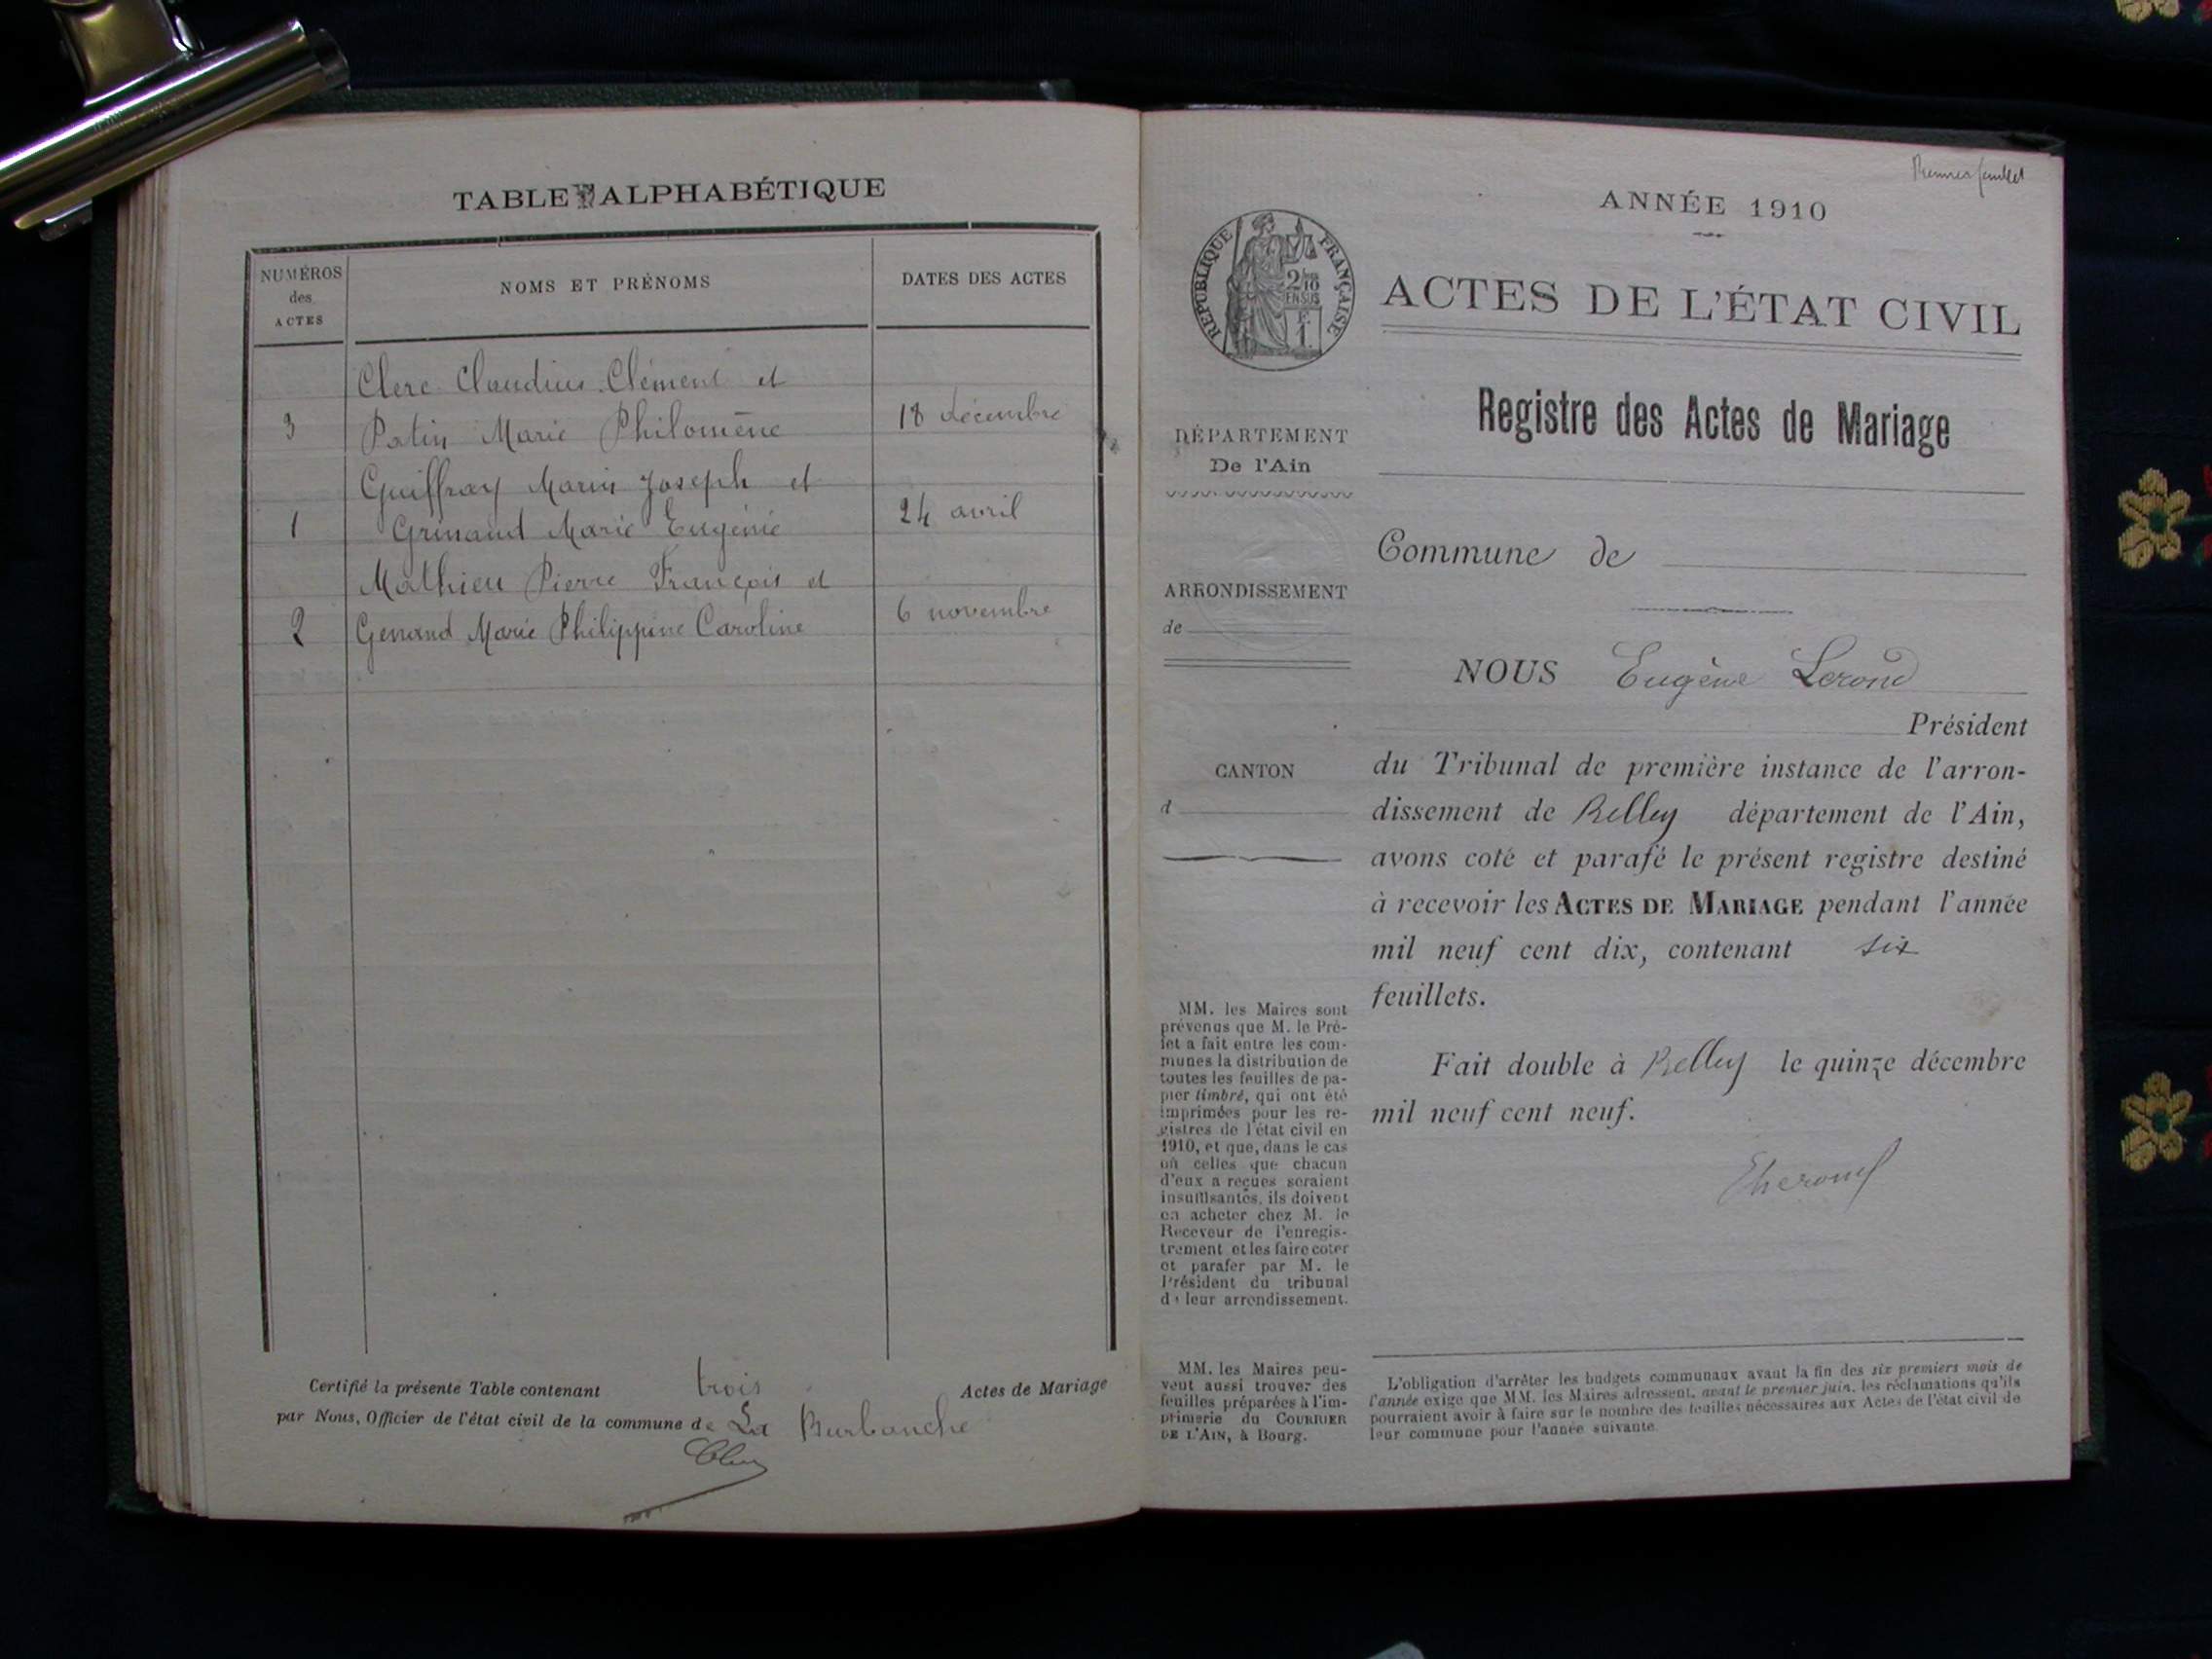 TABLE ALPHABÉTIQUE
NUMÉROS
des
ACTES
NOMS ET PRÉNOMS
DATES DES ACTES
Clerc Claudius Clément et
3 Patin Marie Philomène 18 décembre
Guiffray Marin Joseph et
1 Grinand Marie Eugénie 24 avril
Mathieu Pierre François et
2 Genand Marie Philippine Caroline 6 novembre
Certifié la présente Table contenant trois Actes de Mariage
par Nous, Officier de l'état civil de la commune de La Burbanche
Premier feuillet
ANNÉE 1910
RÉPUBLIQUE FRANÇAISE
2/10
EN SUS
F.
1
ACTES DE L'ÉTAT CIVIL
Registre des Actes de Mariage
DÉPARTEMENT
De l'Ain
ARRONDISSEMENT
de
CANTON
d
MM. les Maires sont
prévenus que M. le Pré-
fet a fait entre les com-
munes la distribution de
toutes les feuilles de pa-
pier timbré, qui ont été
imprimées pour les re-
gistres de l'état civil en
1910, et que, dans le cas
où celles que chacun
d'eux a reçues seraient
insuffisantes, ils doivent
en acheter chez M. le
Receveur de l'enregis-
trement et les faire coter
et parafer par M. le
Président du tribunal
de leur arrondissement.
MM. les Maires peu-
vent aussi trouver des
feuilles préparées à l'im-
primerie du COURRIER
DE L'AIN, à Bourg.
Commune de
NOUS Eugène Lerond
Président
du Tribunal de première instance de l'arron-
dissement de Belley département de l'Ain,
avons coté et parafé le présent registre destiné
à recevoir les ACTES DE MARIAGE pendant l'année
mil neuf cent dix, contenant six
feuillets.
Fait double à Belley le quinze décembre
mil neuf cent neuf.
L'obligation d'arrêter les budgets communaux avant la fin des six premiers mois de
l'année exige que MM. les Maires adressent, avant le premier juin, les réclamations qu'ils
pourraient avoir à faire sur le nombre des feuilles nécessaires aux Actes de l'état civil de
leur commune pour l'année suivante.